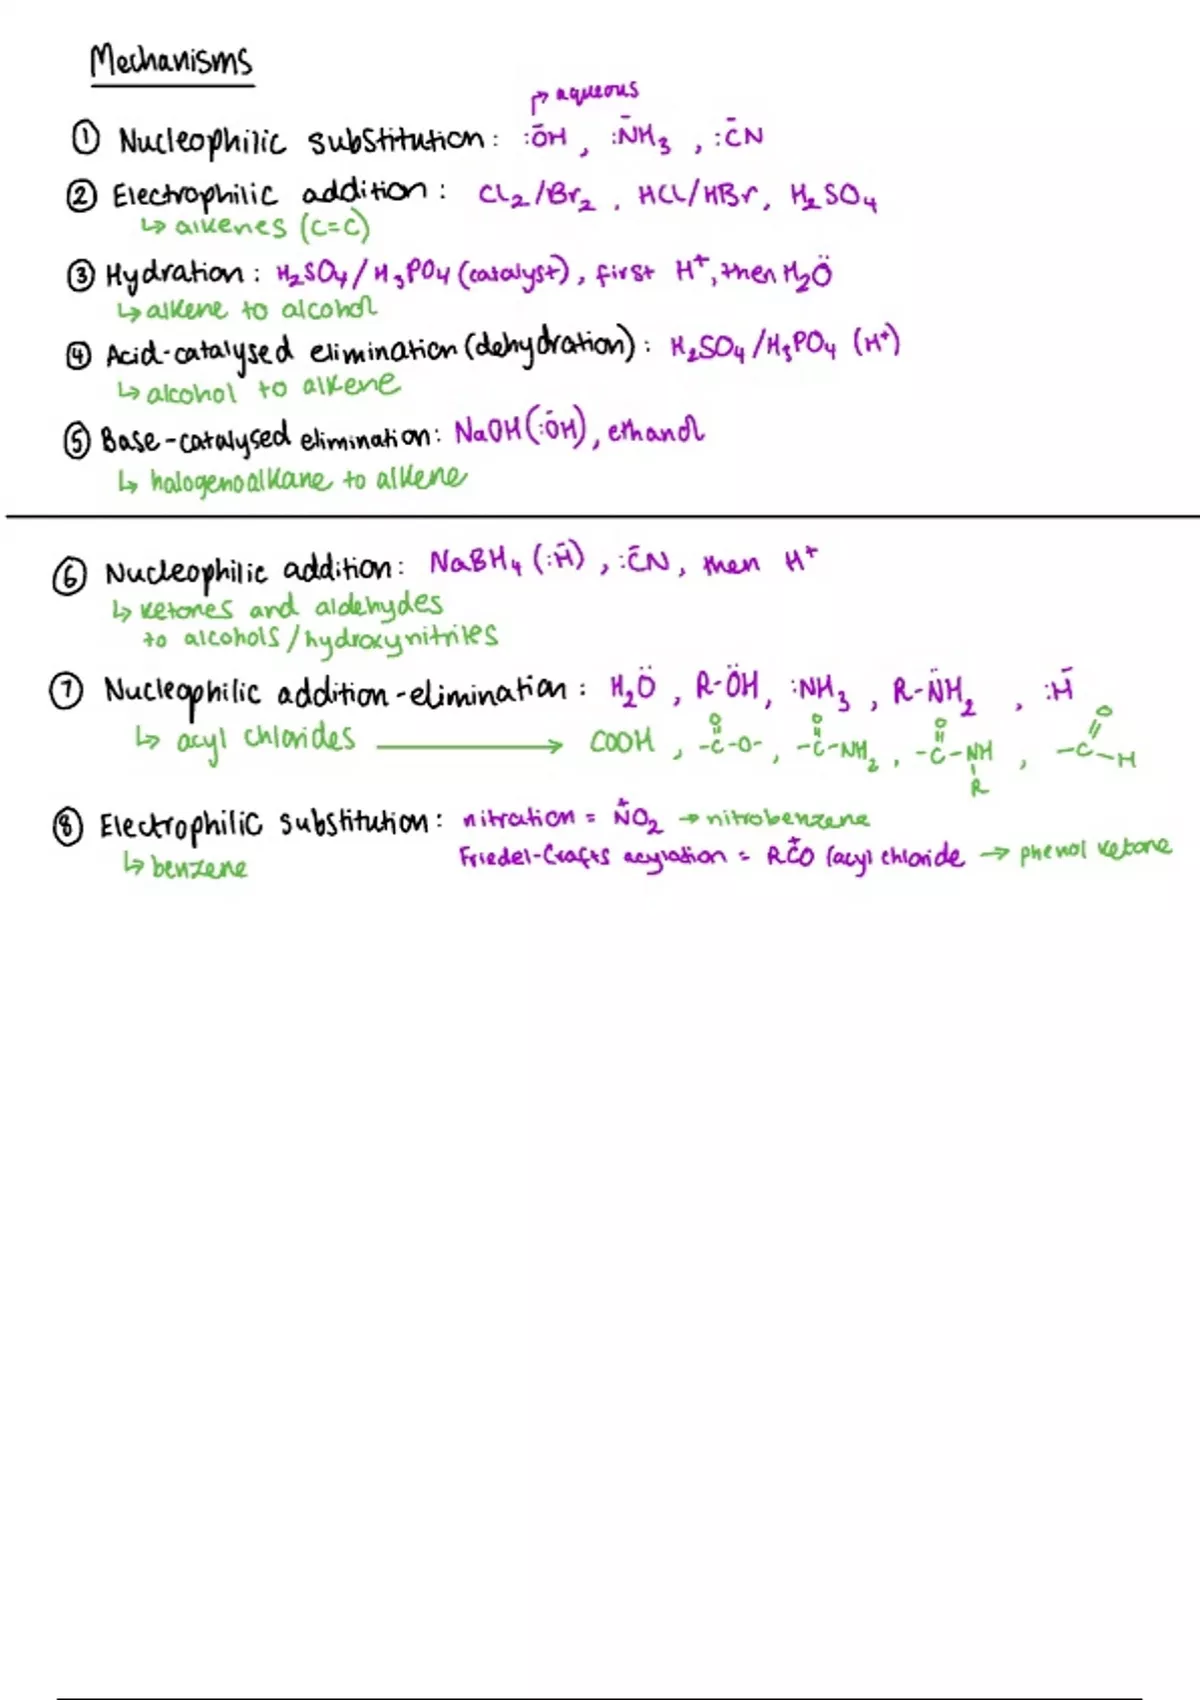 Mechanisms
↱ aqueous
① Nucleophilic substitution: :ŌH, :N̄H₃, :C̄N
② Electrophilic addition: Cl₂/Br₂, HCl/HBr, H₂SO₄
↳ alkenes (C=C)
③ Hydration: H₂SO₄/H₃PO₄ (catalyst), first H⁺, then H₂Ö
↳ alkene to alcohol
④ Acid-catalysed elimination (dehydration): H₂SO₄/H₃PO₄ (H⁺)
↳ alcohol to alkene
⑤ Base-catalysed elimination: NaOH (:ŌH), ethanol
↳ halogenoalkane to alkene
⑥ Nucleophilic addition: NaBH₄ (:H̄), :C̄N, then H⁺
↳ ketones and aldehydes
to alcohols/hydroxynitriles
⑦ Nucleophilic addition-elimination: H₂Ö, R-ÖH, :NH₃, R-N̈H₂, :H̄
↳ acyl chlorides ⟶ COOH, -C(=O)-O-, -C(=O)-NH₂, -C(=O)-NH-R, -C(=O)-H
⑧ Electrophilic substitution: nitration = N⁺O₂ → nitrobenzene
↳ benzene Friedel-Crafts acylation = RC⁺O (acyl chloride → phenol ketone